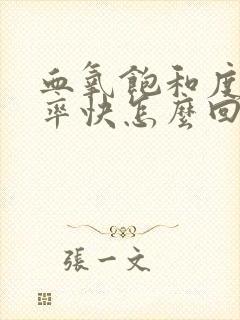 血氧飽和度
率快怎麼回
張一文